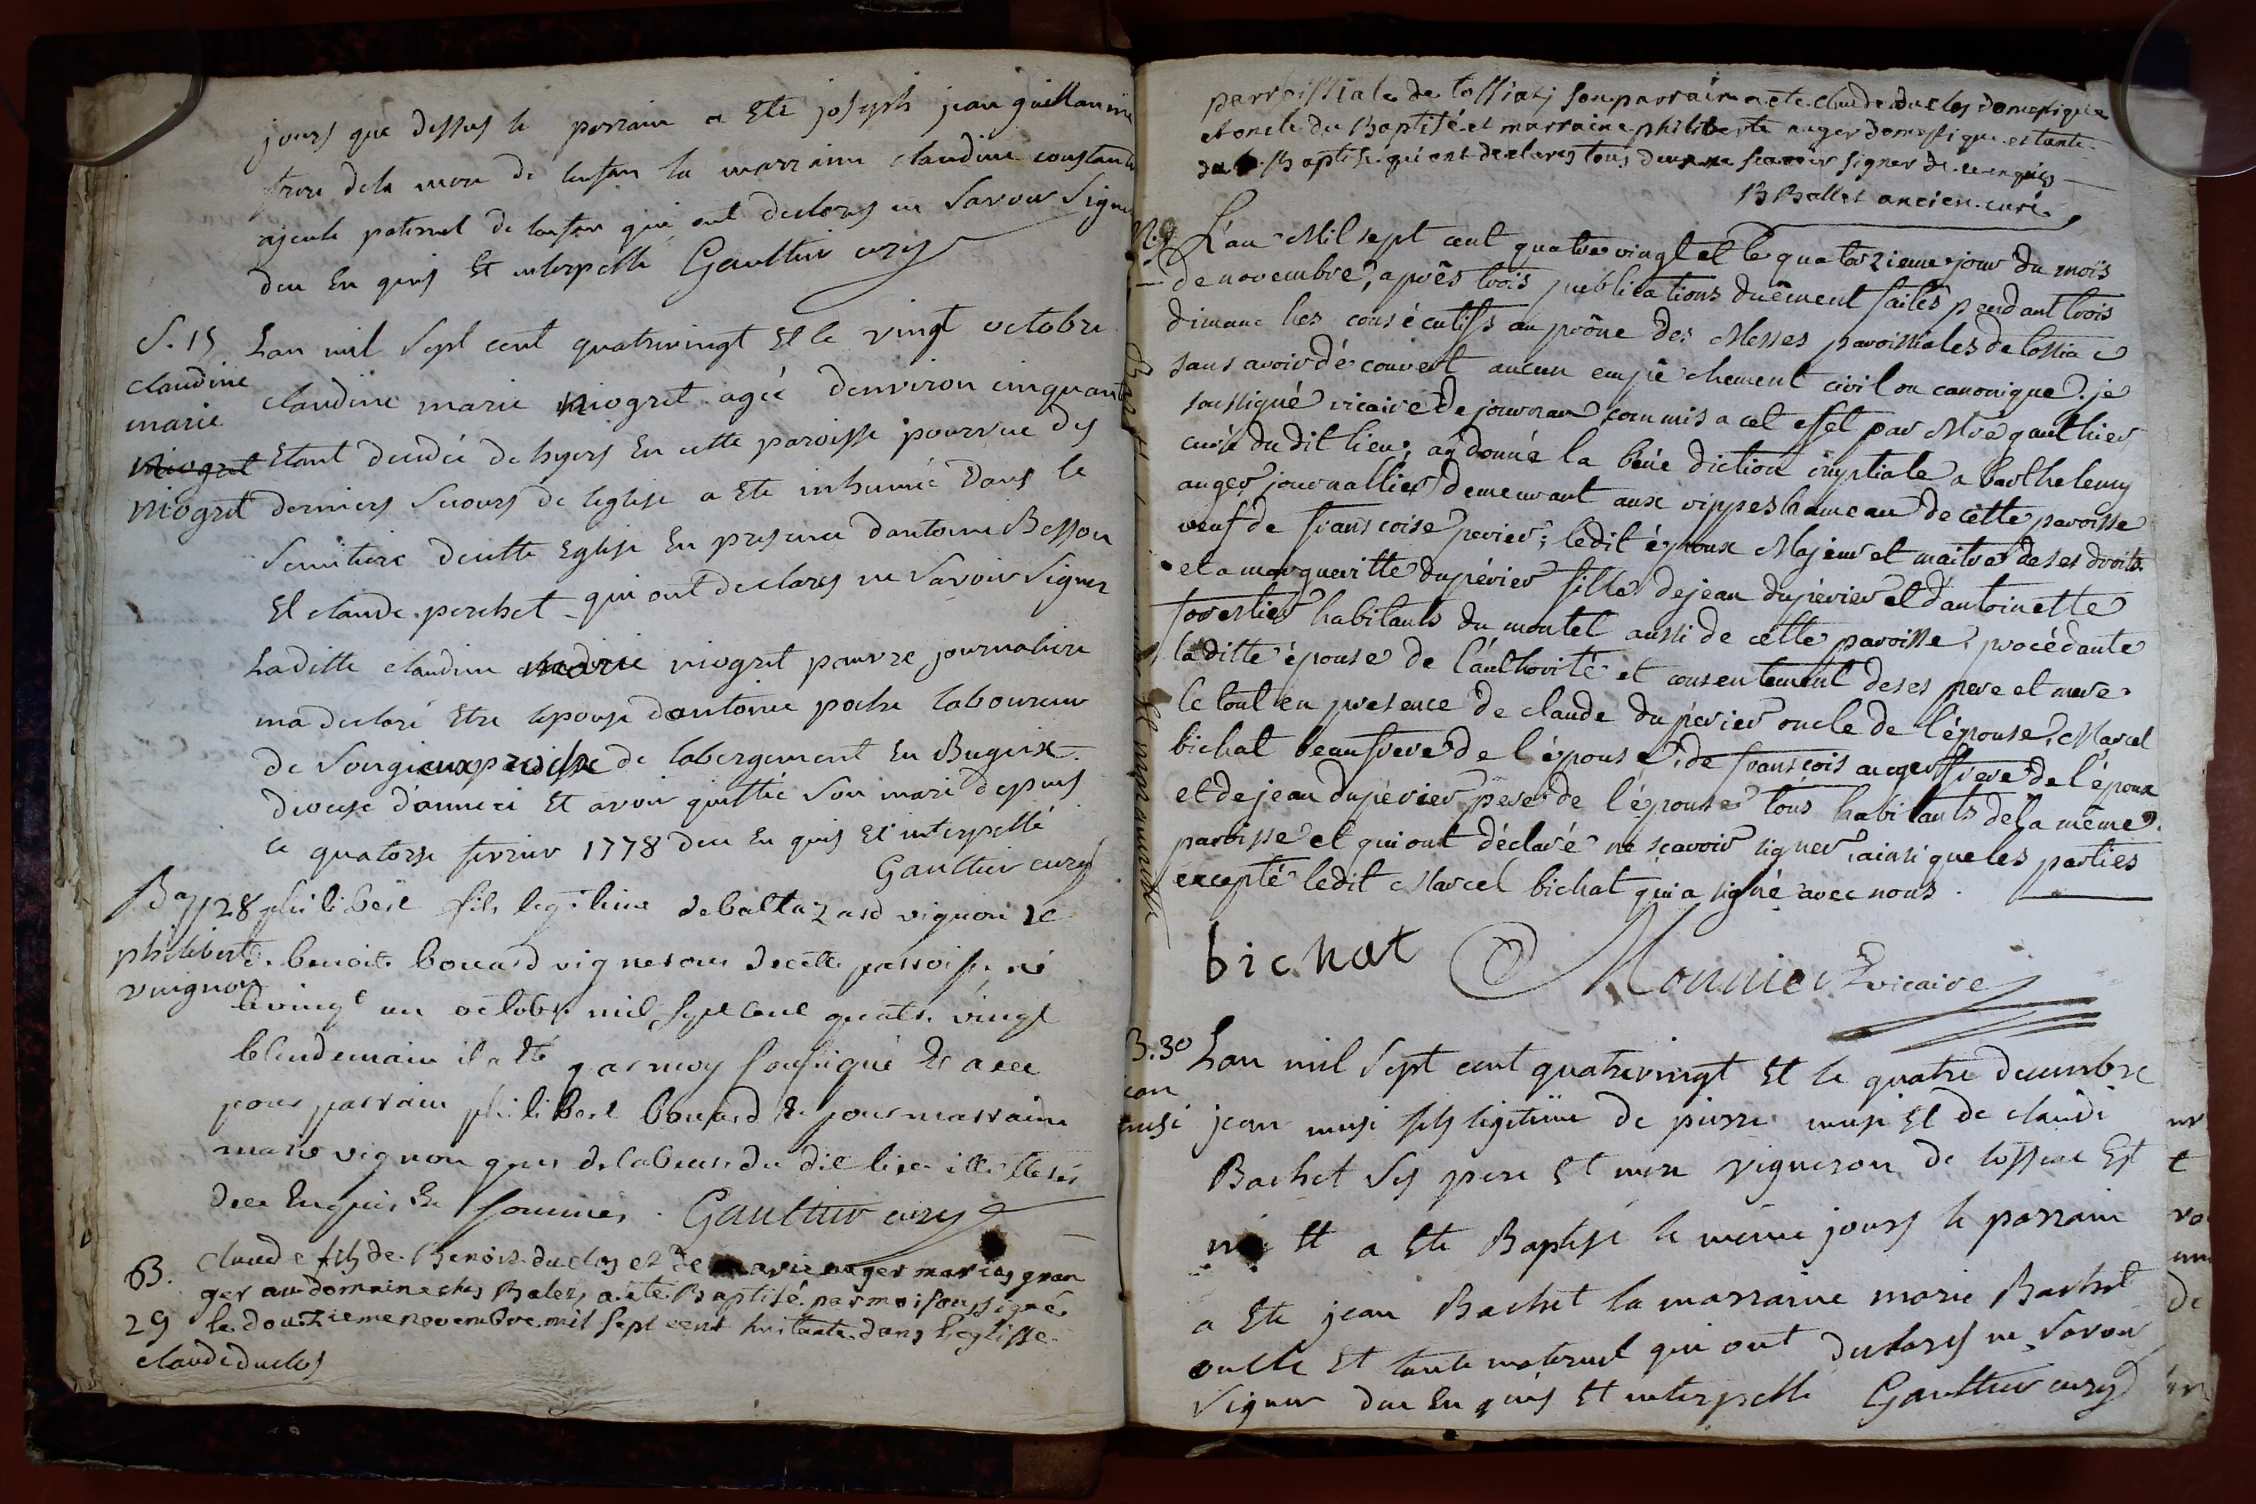 jours que dessus le parrain a Ete joseph jean guillaume
frere de la mere de lenfan la marraine claudine constantin
ayeule paternel de lenfan qui ont declares ne Savoir Signer
deu En quis Et interpellé Gaulthier curé
S. 15 Lan mil Sept cent quatrevingt Et le vingt octobre
claudine
marie
niogret
niogret
claudine marie niogret agée denviron cinquante
Etant decedée dehyers En cette paroisse pourvue des
derniers Secours de leglise a Ete inhumée Dans le
Semitiere decette Eglise En presence dantoine Besson
Et claude perchet qui ont declares ne Savoir Signer
Laditte claudine marie niogret pauvre journaliere
ma declaré Etre lepouse dantoine poche laboureur
de Songieux paroisse de labergement En Bugeix
diocese d'anneci Et avoir quitté Son mari depuis
le quatorze fevrier 1778 deu En quis Et interpellé
Gaulthier curé
Bap 28 philibert fils legitime de baltazard vignon et
philibert
vuignon
de benoite bouard vignerons decette parroisse, né
le vingt un octobre mil sept cent quatre vingt
lelendemain il a été par moy soussigné Et a eu
pour parrain philibert bouard & pour marraine
marie vignon du dit lieu illetterés
deu Enquis Et sommés . Gaulthier curé
B. claude fils de Benoit duclos et de marie auger mariés gran
ger au domaine chez Balet, a été Baptisé par moi soussigné
29 le douzieme novembre mil sept cent huitante dans l'eglisse
claude duclos
parroissiale de tossiat; son parrain a eté claude duclos domestique
et oncle du Baptisé et marraine philiberte auger domestique et tante
du Baptisé qui ont declarés tous deux ne scavoir signer de ce enquis
B Ballet ancien curé
L'an Mil sept cent quatre vingt et le quatorzieme jour du mois
de novembre, après trois publications duëment faites pendant trois
dimanches consécutifs au prône des Messes paroissiales de tossiat
sans avoir découvert aucun empêchement civil ou canonique. je
soussigné vicaire de journan commis a cet effet par Mre gaulthier
curé du dit lieu; ay donné la bénédiction nuptiale a barthelemy
auger journallier demeurant aux rippes hameau de cette paroisse
veuf de franscoise perier; ledit époux Majeur et maitre de ses droits
et a margueritte dupérier fille de jean dupérier et d'antoinette
forestier habitants du montel aussi de cette paroisse, procédante
laditte épouse de l'authorité et consentement de ses pere et mere.
le tout en presence de claude dupérier oncle de l'épouse, Marcel
bichat beaufrere de l'épouse, de franscois auger frere de l'époux
et de jean dupérier pere de l'épouse tous habitants de la même
paroisse et qui ont déclaré ne scavoir signer, ainsi que les parties
excepté ledit Marcel bichat qui a signé avec nous.
bichat Monnier vicaire
B. 30 Lan mil Sept cent quatrevingt Et le quatre decembre
jean
musi jean musi fils legitime de pierre musi Et de claudi
Bachet Ses pere Et mere vigneron de tossiat Est
né Et a Ete Baptisé le même jours le parrain
a Ete jean Bachet la marraine marie Bachet
oncle Et tante maternel qui ont declarés ne Savoir
Signer deu En quis Et interpellé Gaulthier curé